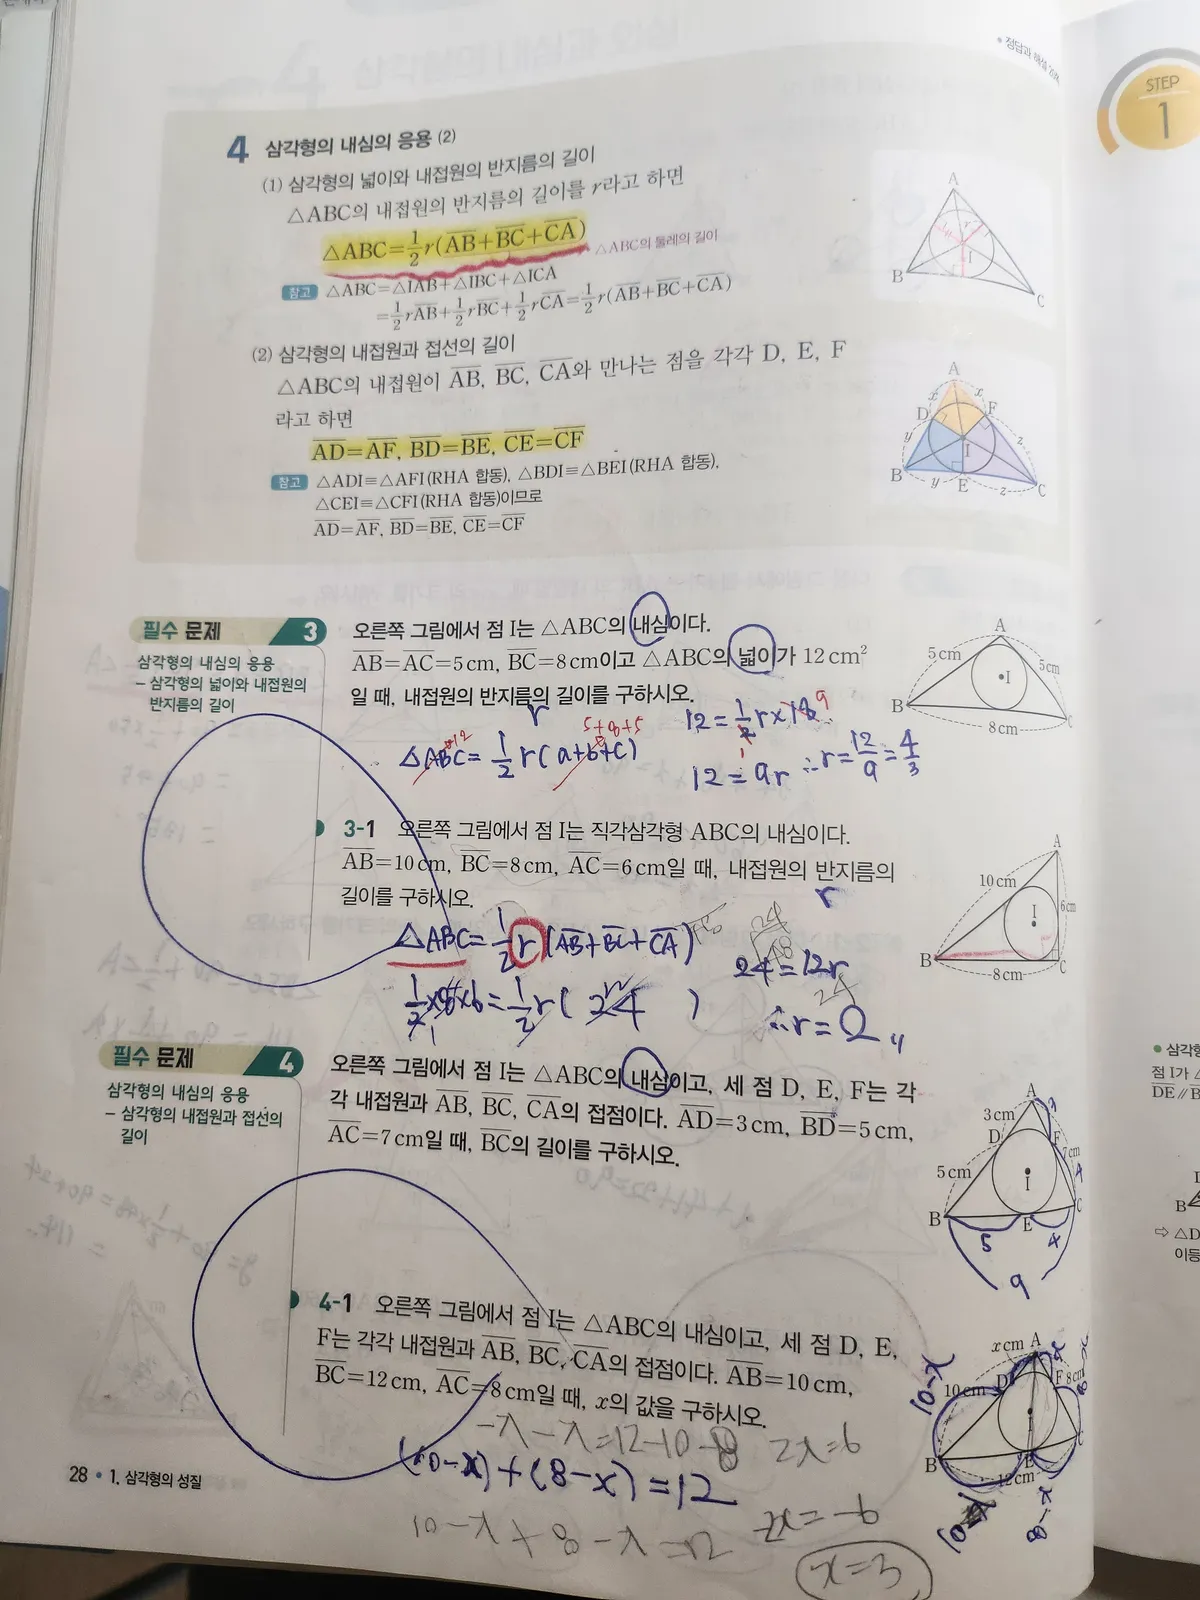 STEP
1
4 삼각형의 내심의 응용 (2)
(1) 삼각형의 넓이와 내접원의 반지름의 길이
△ABC의 내접원의 반지름의 길이를 r라고 하면
△ABC=1/2 r(AB+BC+CA)
△ABC의 둘레의 길이
참고 △ABC=△IAB+△IBC+△ICA
=1/2 rAB+1/2 rBC+1/2 rCA=1/2 r(AB+BC+CA)
(2) 삼각형의 내접원과 접선의 길이
△ABC의 내접원이 AB, BC, CA와 만나는 점을 각각 D, E, F
라고 하면
AD=AF, BD=BE, CE=CF
참고 △ADI≡△AFI(RHA 합동), △BDI≡△BEI(RHA 합동),
△CEI≡△CFI(RHA 합동)이므로
AD=AF, BD=BE, CE=CF
A
r
I
B
C
A
x
x
D
F
y
z
I
B
y
E
z
C
필수 문제 3
삼각형의 내심의 응용
– 삼각형의 넓이와 내접원의
반지름의 길이
오른쪽 그림에서 점 I는 △ABC의 내심이다.
AB=AC=5cm, BC=8cm이고 △ABC의 넓이가 12cm²
일 때, 내접원의 반지름의 길이를 구하시오.
r
5+8+5
△ABC=1/2 r(a+b+c)
12=1/2 r×18 9
12=9r ∴r=12/9=4/3
A
5cm
5cm
I
B
8cm
C
3-1 오른쪽 그림에서 점 I는 직각삼각형 ABC의 내심이다.
AB=10cm, BC=8cm, AC=6cm일 때, 내접원의 반지름의
길이를 구하시오.
r
△ABC=1/2 r(AB+BC+CA)
24=12r
1/2×8×6=1/2 r( 24 )
∴r=2
A
10cm
6cm
I
B
8cm
C
필수 문제 4
삼각형의 내심의 응용
– 삼각형의 내접원과 접선의
길이
오른쪽 그림에서 점 I는 △ABC의 내심이고, 세 점 D, E, F는 각
각 내접원과 AB, BC, CA의 접점이다. AD=3cm, BD=5cm,
AC=7cm일 때, BC의 길이를 구하시오.
A
3cm
3
D
F
7cm
5cm
I
4
B
E
C
5
4
9
4-1 오른쪽 그림에서 점 I는 △ABC의 내심이고, 세 점 D, E,
F는 각각 내접원과 AB, BC, CA의 접점이다. AB=10cm,
BC=12cm, AC=8cm일 때, x의 값을 구하시오.
-x-x=12-10-8 2x=6
(10-x)+(8-x)=12
10-x+8-x=12
2x=-6
x=3
A
x cm
x
10-x
10cm
D
F
8cm
8-x
I
B
E
C
12cm
10-x
8-x
28 • 1. 삼각형의 성질
• 삼각형
점 I가 △
DE∥B
B
⇨ △D
이등